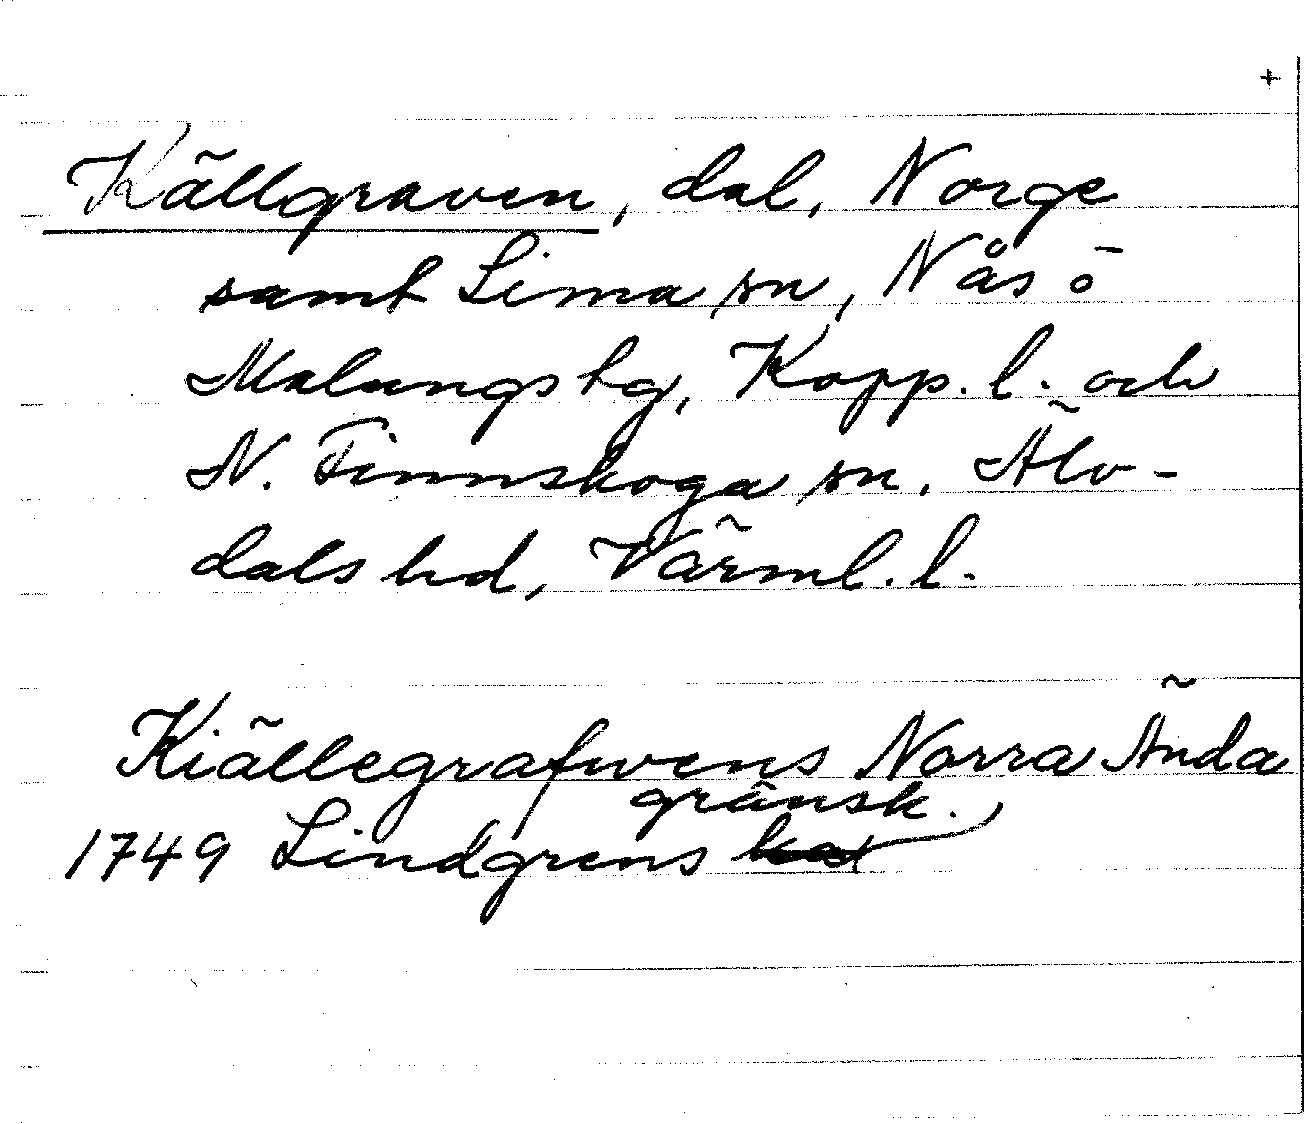 +
Källgraven, dal, Norge
samt Lima sn, Nås o
Malungs hg, Kopp. l. och
N. Finnskoga sn, Älv-
dals hd, Värml. l.
Kiällegrafwens Norra Ända
gränsk.
1749 Lindgrens